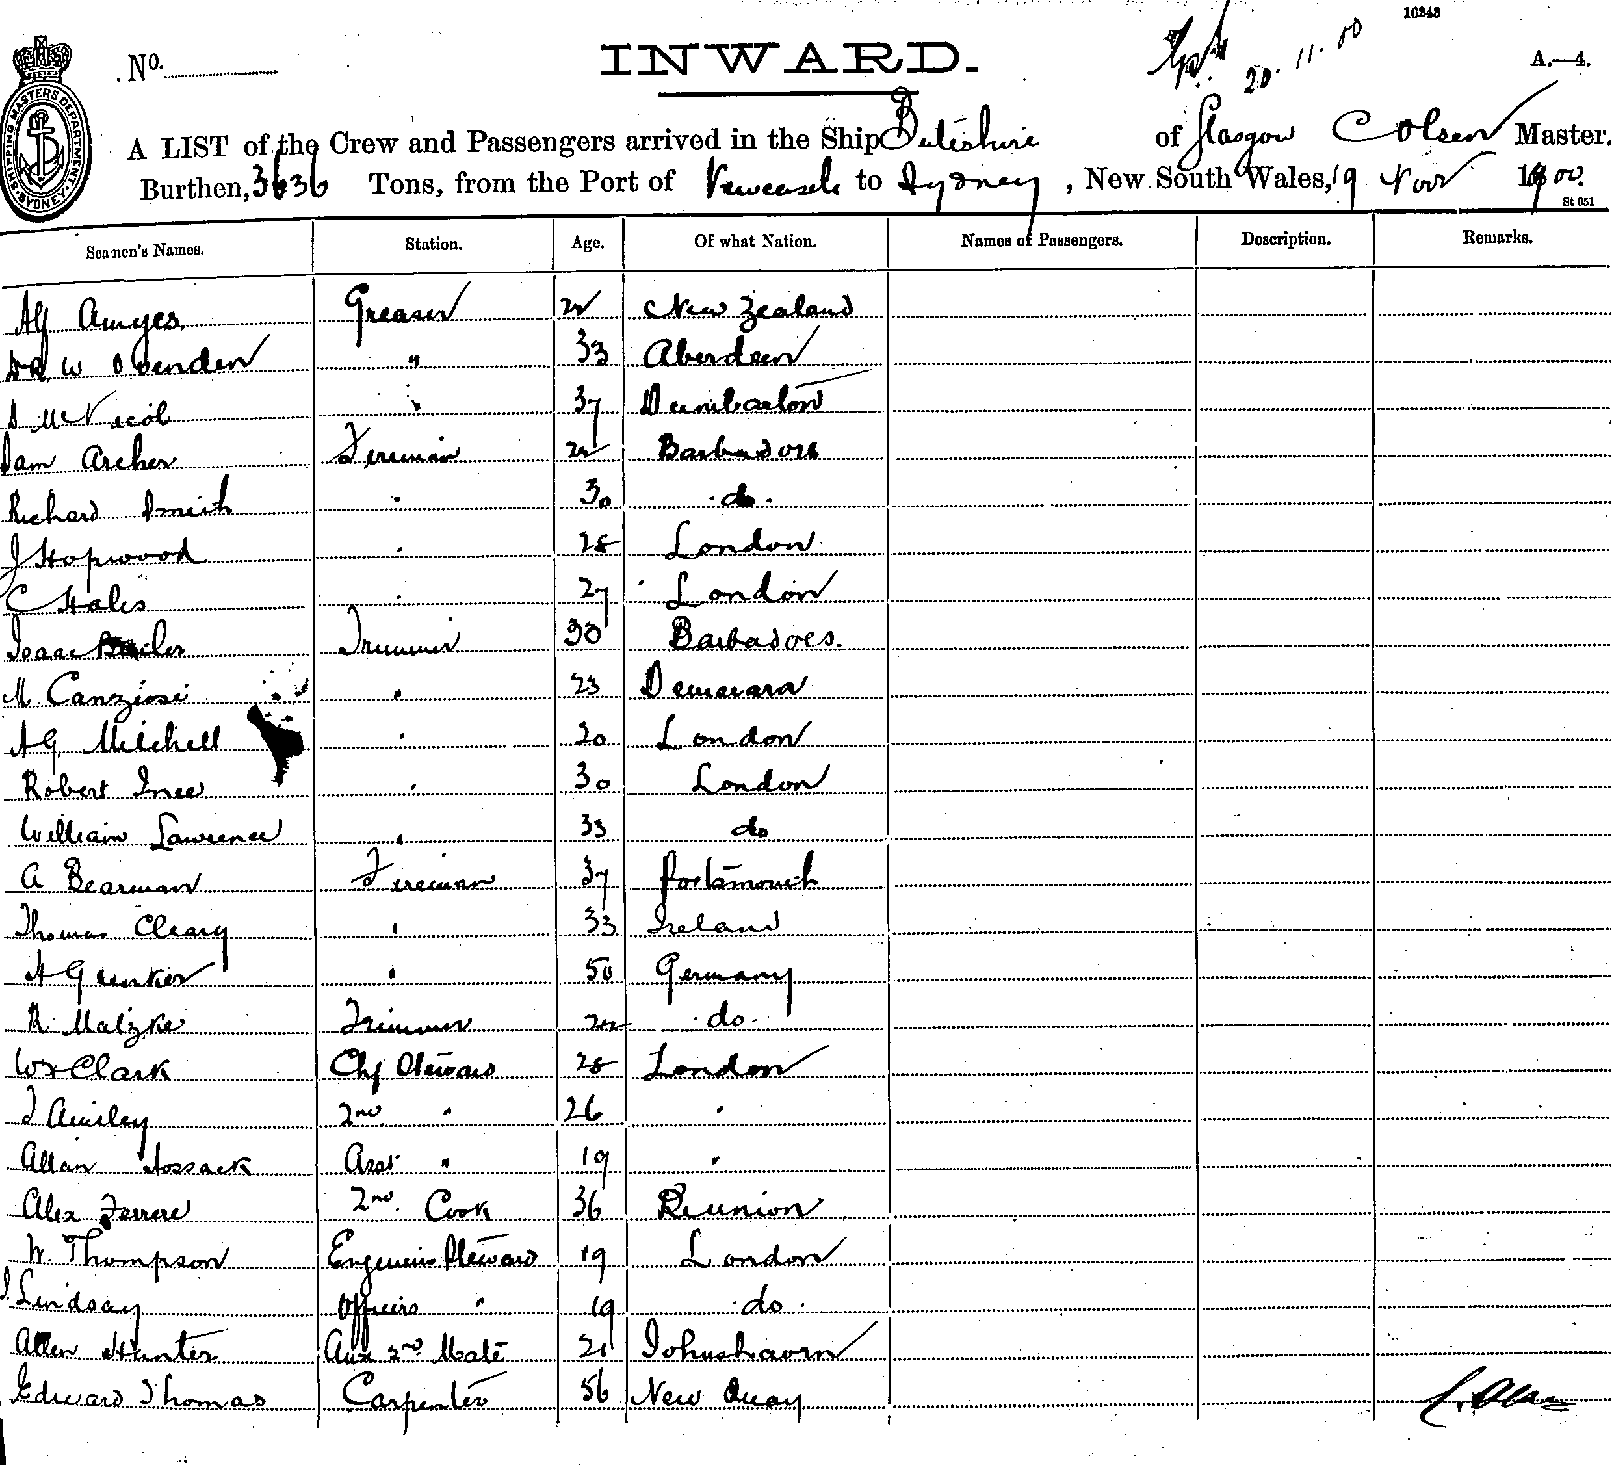 10343
20.11.00
No.
INWARD.
A.—4.
A LIST of the Crew and Passengers arrived in the Ship Buteshire of Glasgow C Olsen Master.
Burthen, 3636 Tons, from the Port of Newcastle to Sydney, New South Wales, 19 Novr 1900.
SHIPPING MASTERS DEPARTMENT SYDNEY
St 051
Seamen's Names. Station. Age. Of what Nation. Names of Passengers. Description. Remarks.
Alf Amyes Greaser 22 New Zealand
W Ovenden " 33 Aberdeen
D McNicol " 37 Dumbarton
Sam Archer Fireman 22 Barbadoes
Richard Smith " 30 do.
J Hopwood " 28 London
C Hales " 27 London
Isaac Trimmer 30 Barbadoes.
M Canziosi " 23 Demerara
A G Mitchell " 20 London
Robert Ince " 30 London
William Lawrence " 33 do
A Bearman Fireman 37 Portsmouth
Thomas Cleary " 33 Ireland
A Gunker " 50 Germany
R. Matzke Trimmer 22 do.
Wm Clark Chf Steward 28 London
26 2nd " "
Allan Hossack Asst " 19 "
Alex Ferrere 2nd Cook 36 Reunion
W. Thompson Engineers Steward 19 London
J. Lindsay Officers " 19 do.
Allen Hunter Aux 2nd Mate 21 Johnshaven
Edward Thomas Carpenter 56 New Quay
C. Olsen